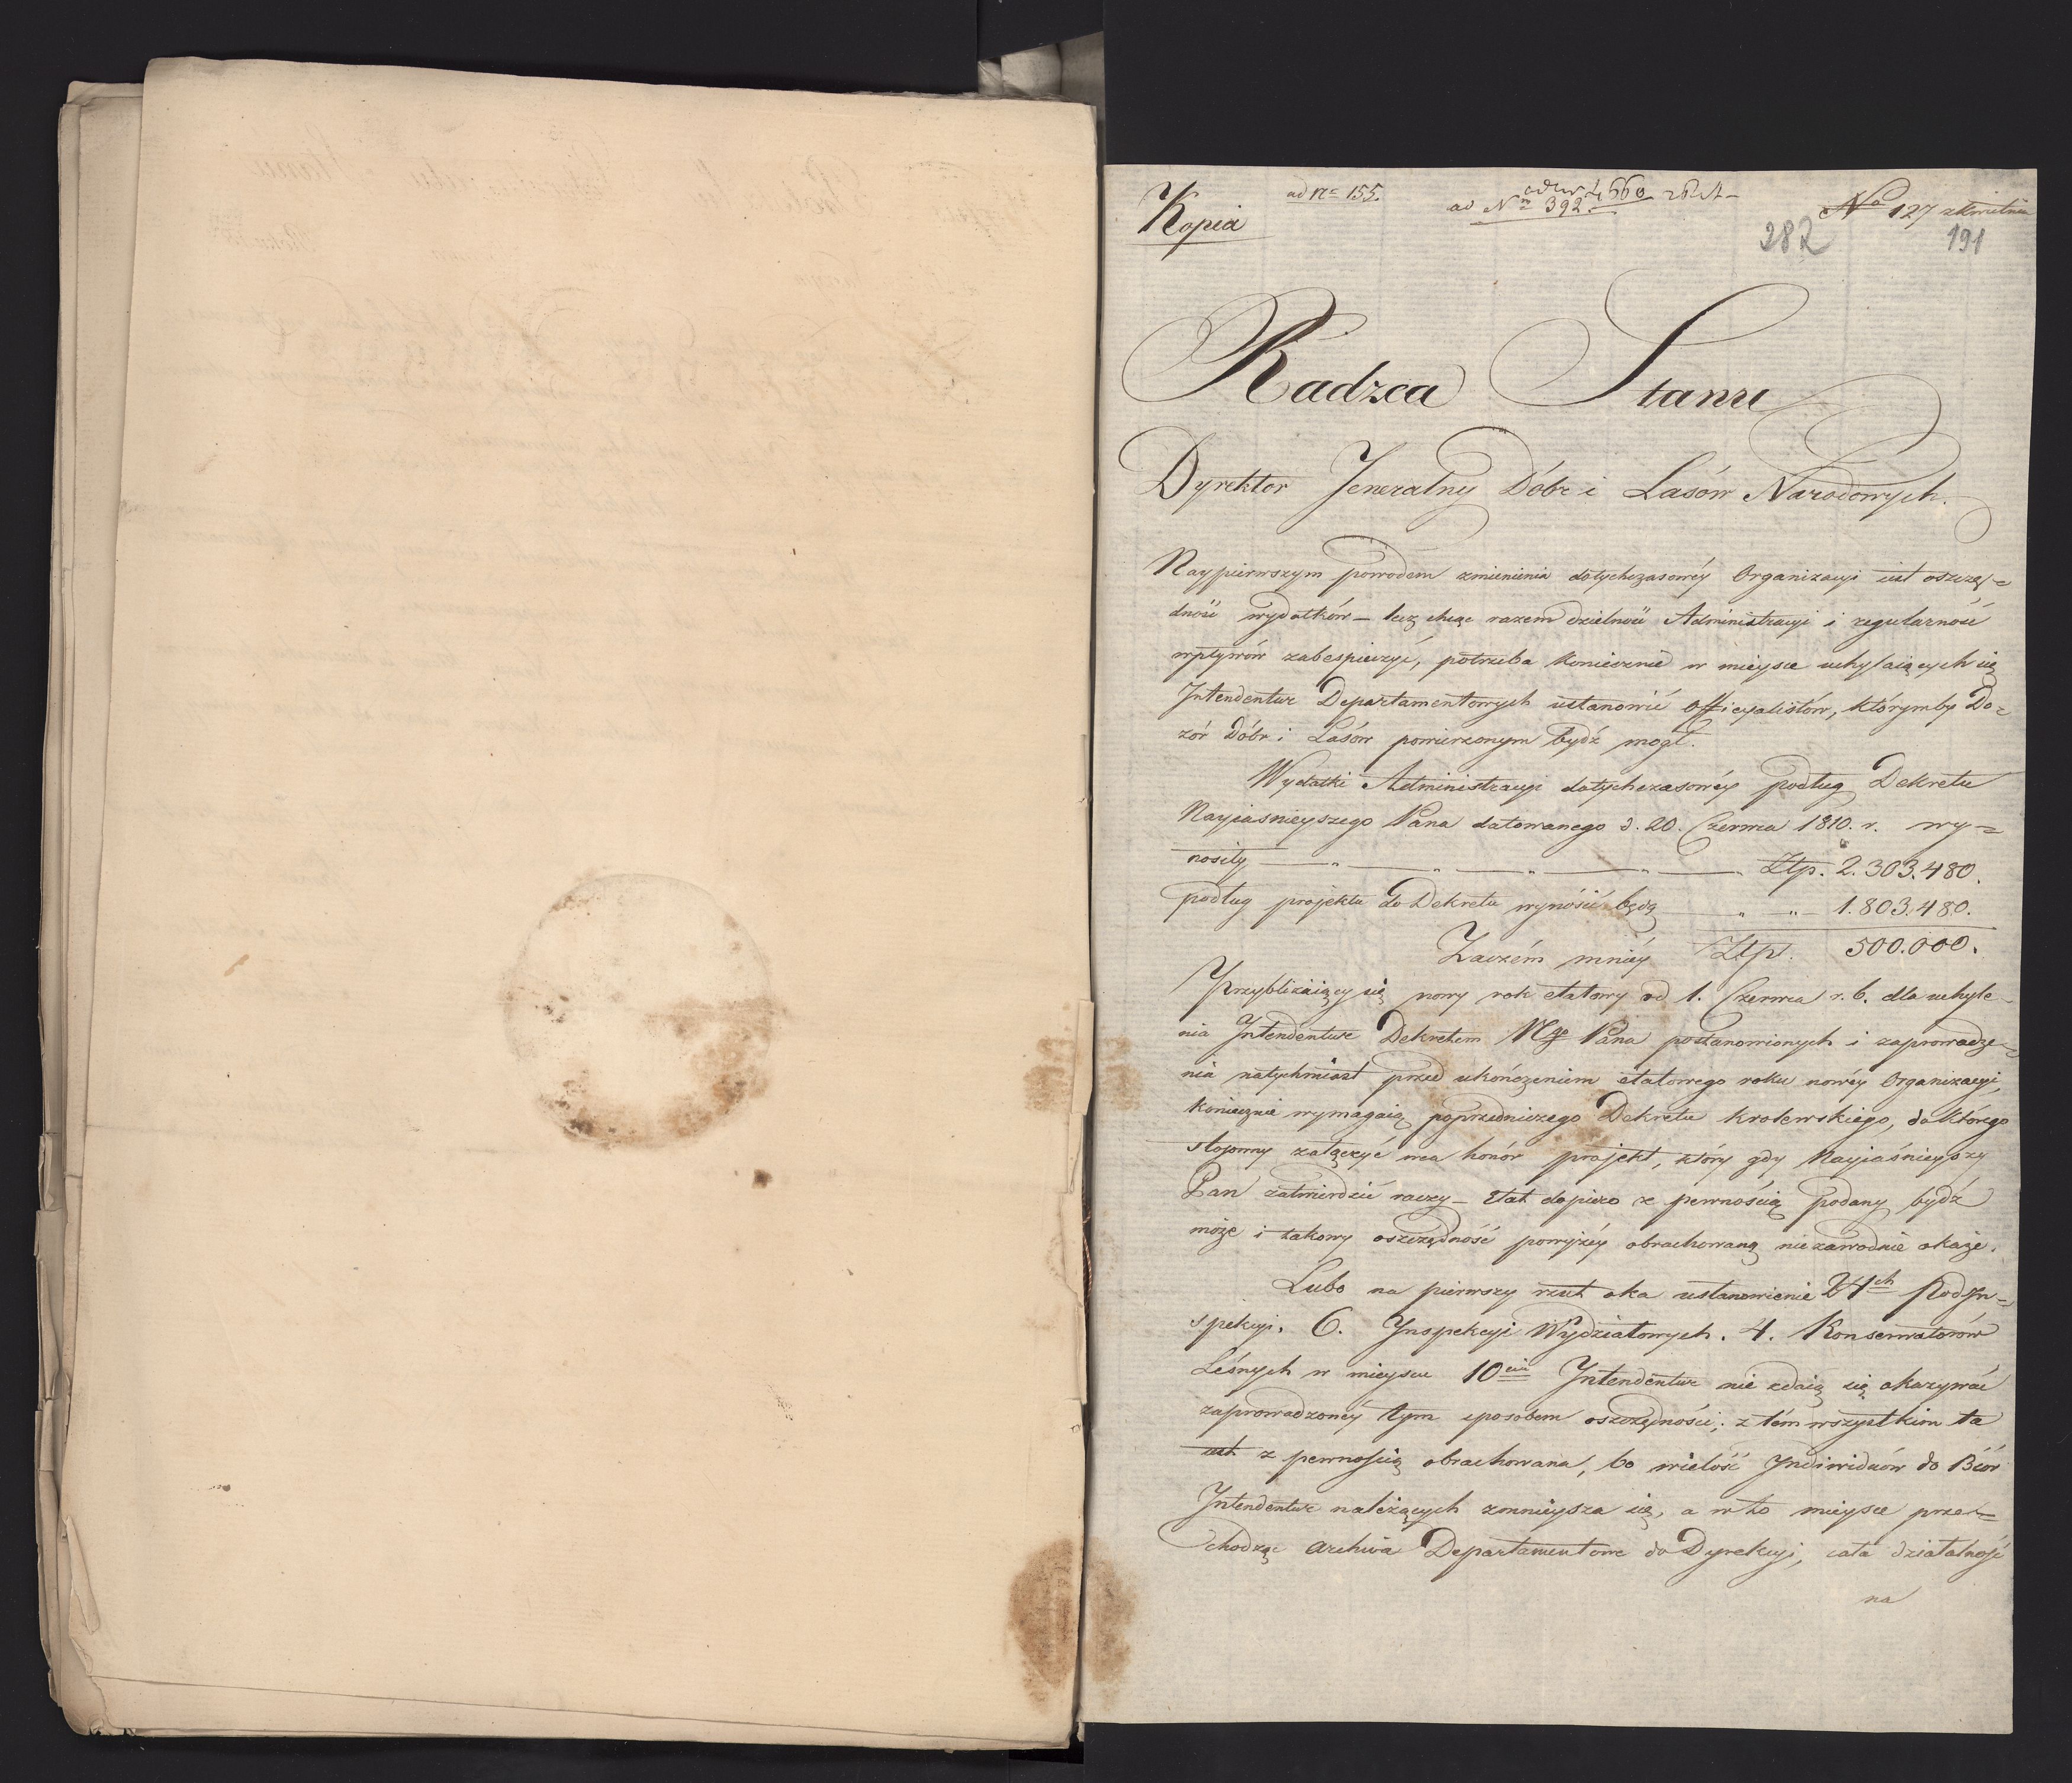 Kopia
ad Nº 155.
ad Nº 392.
Nº 127 z kwietnia
282
191
Radzca Stanu
Dyrektor Jeneralny Dóbr i Lasów Narodowych.
Naypierwszym powodem zmienienia dotychczasowéy Organizacyi iest oszczę=
dność wydatków – lecz chcąc razem dzielność Administracyi i regularność
wpływów zabespieczyć, potrzeba koniecznie w mieysce uchylaiących się
Intendentur Departamentowych ustanowić Officyalistów, którymby Do=
zór Dóbr i Lasów powierzonym bydź mogł.
Wydatki Administracyi dotychczasowéy podług Dekretu
Nayiasnieyszego Pana datowanego d. 20. Czerwca 1810. r. wy=
nosiły — " — " — " — " — Złp. 2.303.480.
podług projektu do Dekretu wynosić będą — " — " — 1.803.480.
Zaczém mniéy Złp. 500.000.
Przybliżaiący się nowy rok etatowy od 1. Czerwca r. b. dla uchyle=
nia Intendentur Dekretem Ngo Pana postanowionych i zaprowadze=
nia natychmiast przed ukończeniem etatowego roku nowéy Organizacyi,
koniecznie wymagaią poprzedniczego Dekretu krolewskiego, do którego
stosowny załączyć ma honór projekt, który gdy Nayiaśnieyszy
Pan zatwierdzić raczy – Etat dopiero z pewnością podany bydź
może i takowy oszczędność powyżéy obrachowaną niezawodnie okaże.
Lubo na pierwszy rzut oka ustanowienie 24ch PodJn=
spekcyi, 6. Jnspekcyi Wydziałowych. 4. Konserwatorów
Leśnych w mieyscu 10ciu Jntendentur nie zdaią się okazywać
zaprowadzonéy tym sposobem oszczędności; z tém wszystkim ta
iest z pewnością obrachowana, bo wielość Jndiwiduów do Biór
Jntendentur należących zmnieysza się, a w to mieysce prze=
chodząc Archiva Departamentowe do Dyrekcyi, cała działalność
na